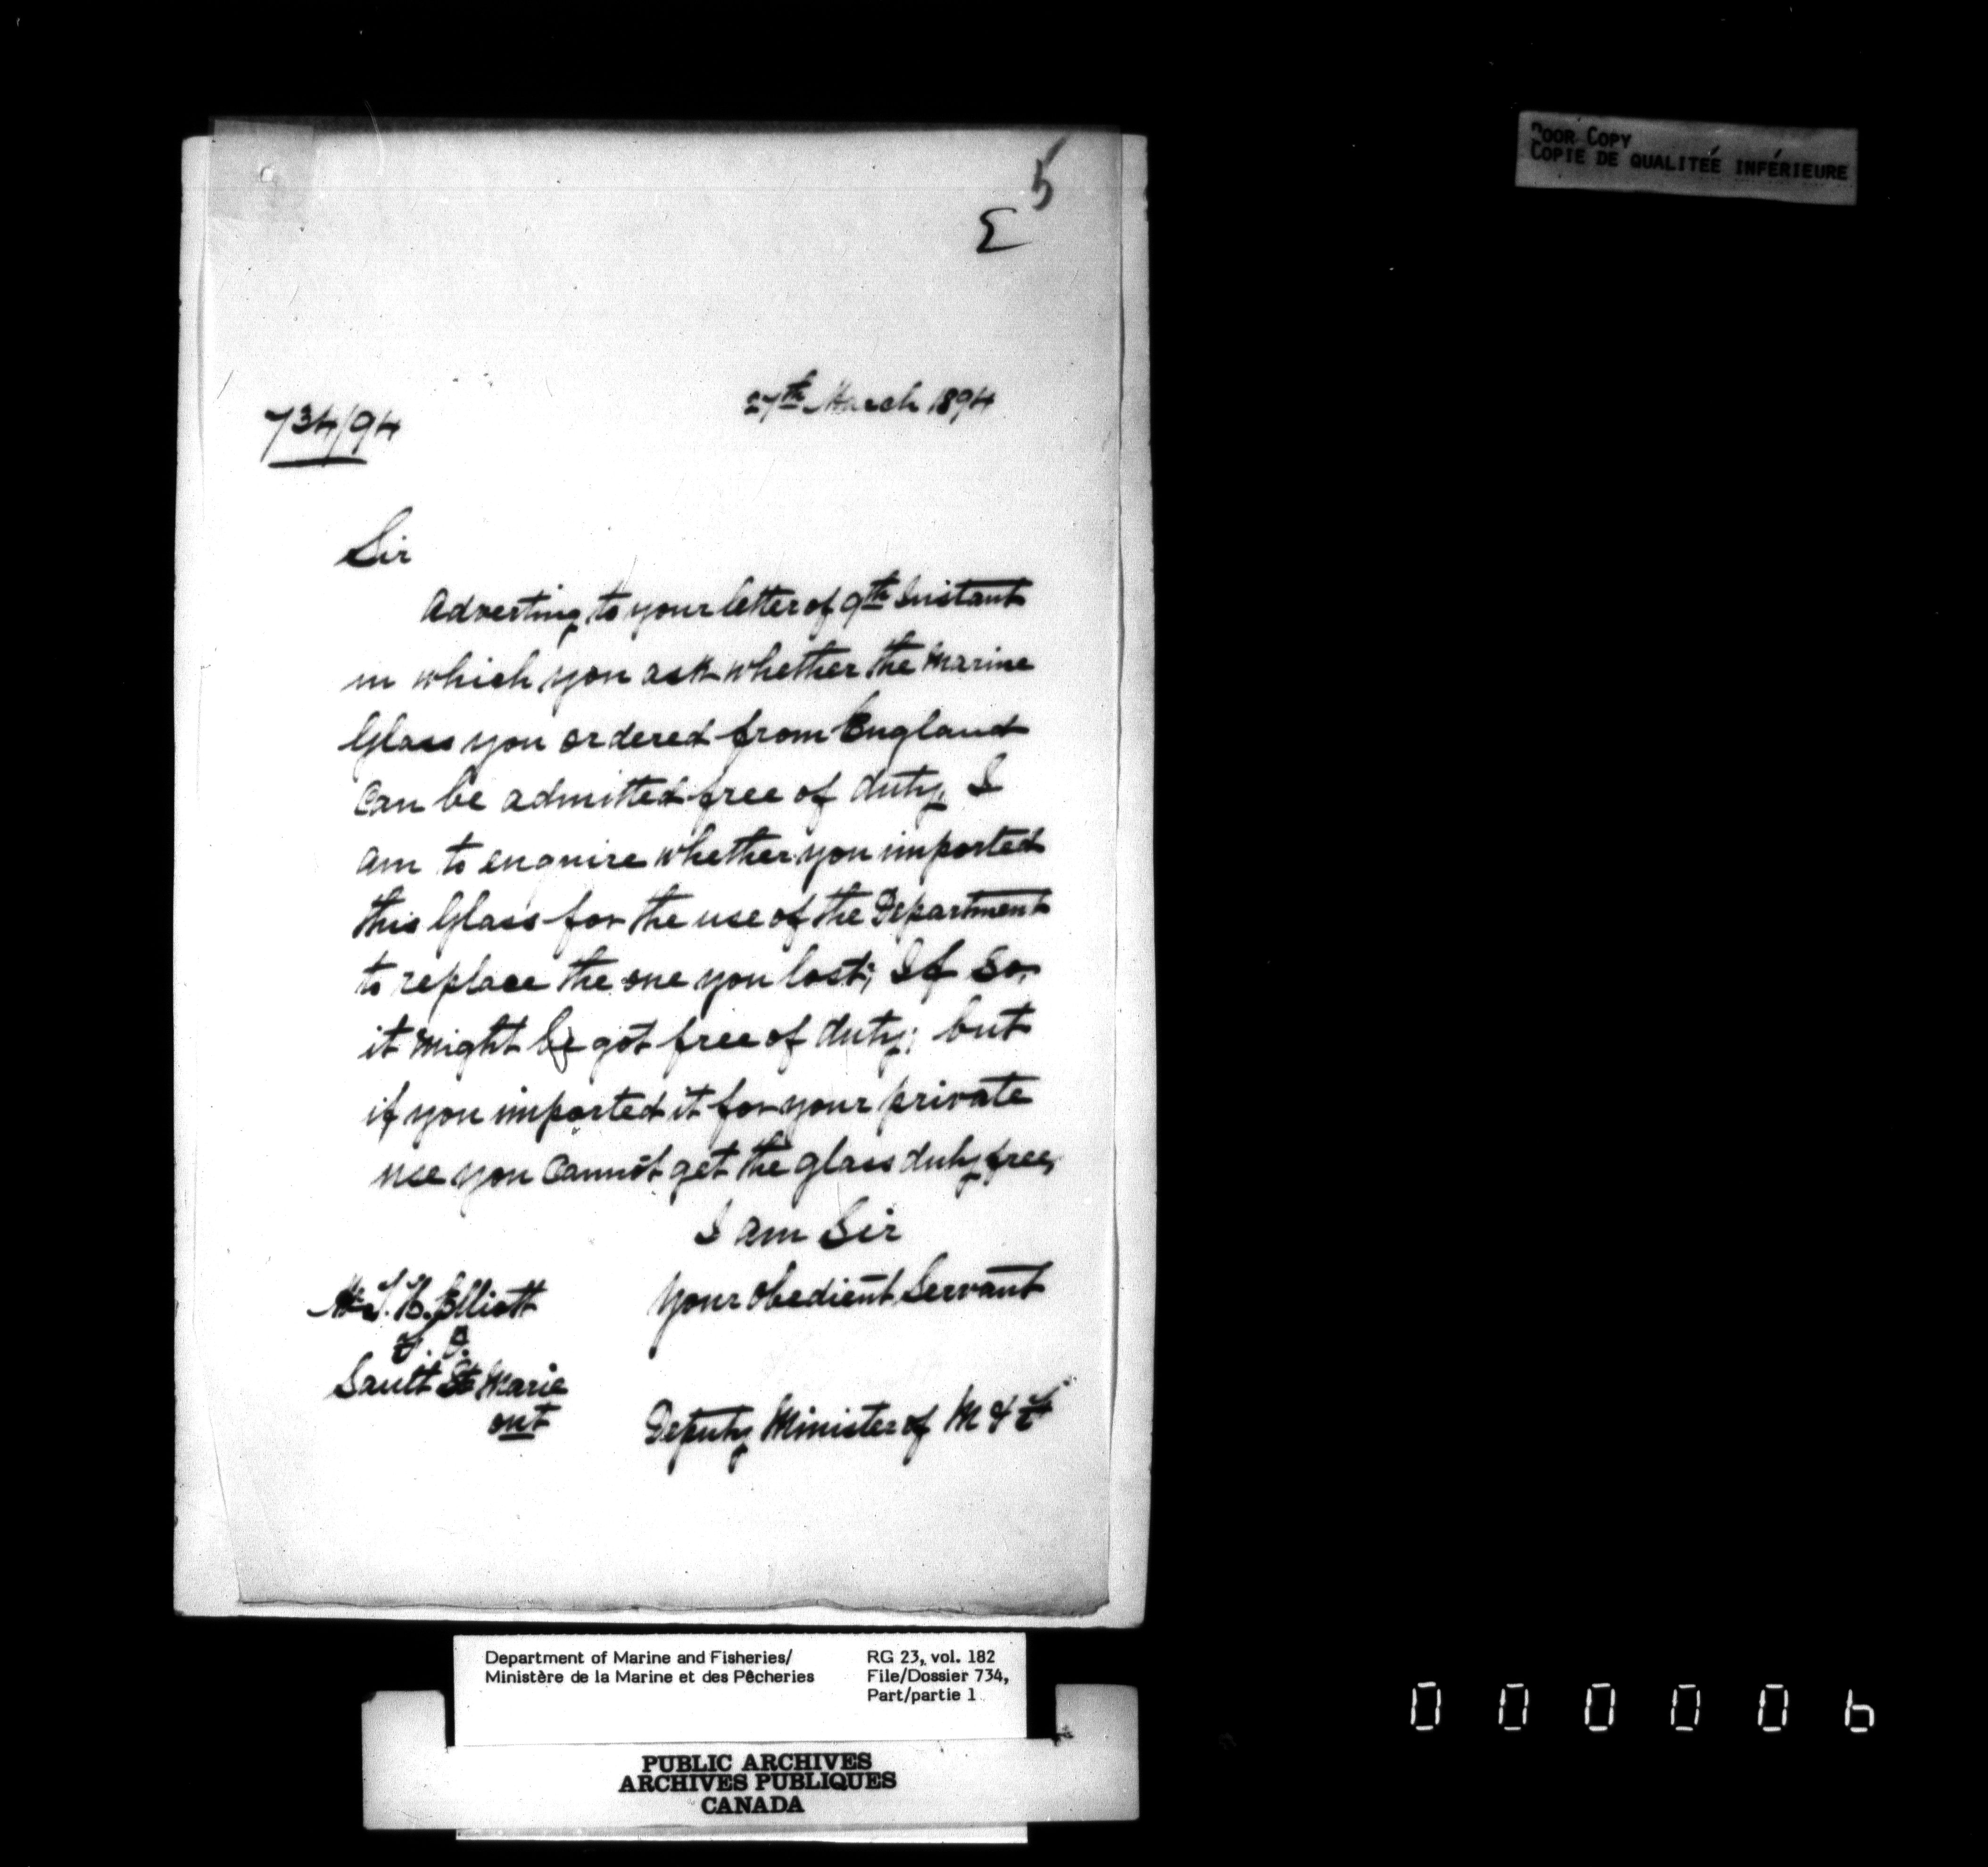 POOR COPY
COPIE DE QUALITEÉ INFÉRIEURE
5
Σ
27th March 1894
734/94
Sir
Adverting to your letter of 9th Instant
in which you ask whether the Marine
Glass you ordered from England
Can be admitted free of duty, I
am to enquire whether you imported
this Glass for the use of the Department
to replace the one you lost; If So,
it might be got free of duty; but
if you imported it for your private
use you Cannot get the glass duty free,
I am Sir
Your obedient Servant
Mr T. H. Elliott
F. O.
Sault Ste Marie
ont
Deputy Minister of M & F
Department of Marine and Fisheries/
Ministère de la Marine et des Pêcheries
RG 23, vol. 182
File/Dossier 734,
Part/partie 1
PUBLIC ARCHIVES
ARCHIVES PUBLIQUES
CANADA
000006